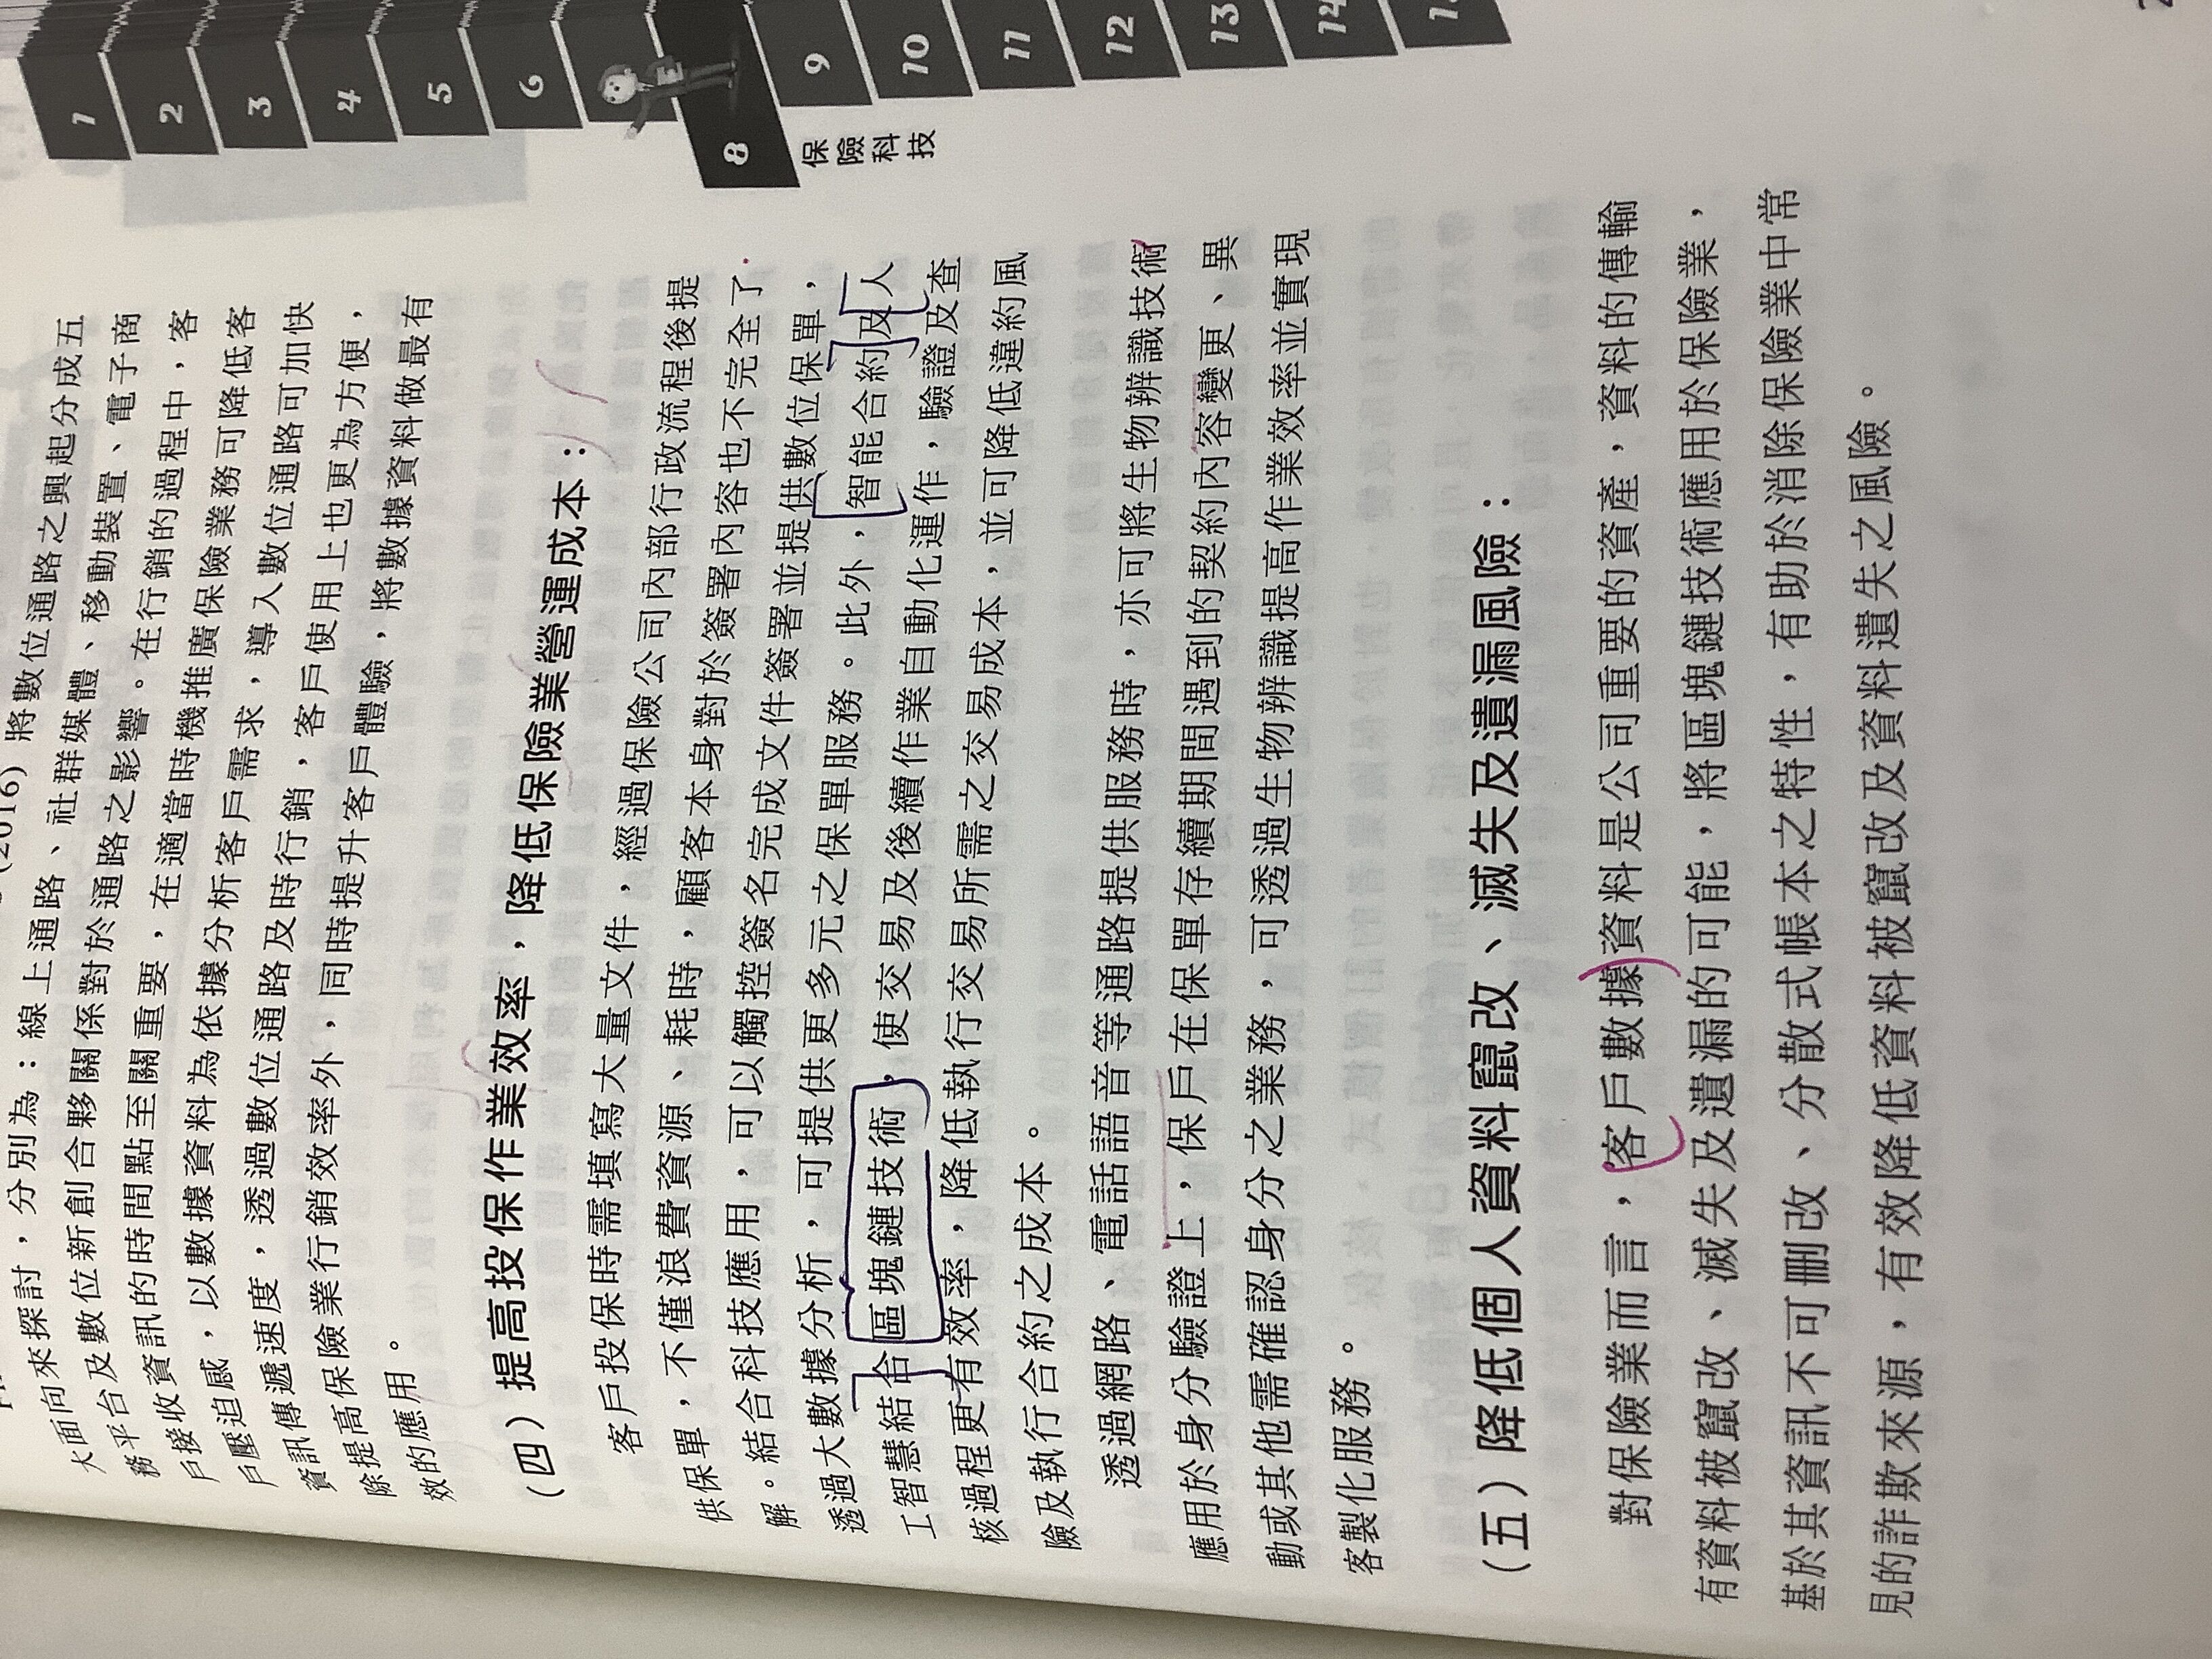 (2016) 將數位通路之興起分成五
大面向來探討，分別為：線上通路、社群媒體、移動裝置、電子商
務平台及數位新創合夥關係對於通路之影響。在行銷的過程中，客
戶接收資訊的時間點至關重要，在適當時機推廣保險業務可降低客
戶壓迫感，以數據資料為依據分析客戶需求，導入數位通路可加快
資訊傳遞速度，透過數位通路及時行銷，客戶使用上也更為方便，
除提高保險業行銷效率外，同時提升客戶體驗，將數據資料做最有
效的應用。
（四）提高投保作業效率，降低保險業營運成本：
客戶投保時需填寫大量文件，經過保險公司內部行政流程後提
供保單，不僅浪費資源、耗時，顧客本身對於簽署內容也不完全了
解。結合科技應用，可以觸控簽名完成文件簽署並提供數位保單，
透過大數據分析，可提供更多元之保單服務。此外，智能合約及人
工智慧結合區塊鏈技術，使交易及後續作業自動化運作，驗證及查
核過程更有效率，降低執行交易所需之交易成本，並可降低違約風
險及執行合約之成本。
透過網路、電話語音等通路提供服務時，亦可將生物辨識技術
應用於身分驗證上，保戶在保單存續期間遇到的契約內容變更、異
動或其他需確認身分之業務，可透過生物辨識提高作業效率並實現
客製化服務。
（五）降低個人資料竄改、滅失及遺漏風險：
對保險業而言，客戶數據資料是公司重要的資產，資料的傳輸
有資料被竄改、滅失及遺漏的可能，將區塊鏈技術應用於保險業，
基於其資訊不可刪改、分散式帳本之特性，有助於消除保險業中常
見的詐欺來源，有效降低資料被竄改及資料遺失之風險。
1
2
3
4
5
6
8
保險科技
9
10
11
12
13
14